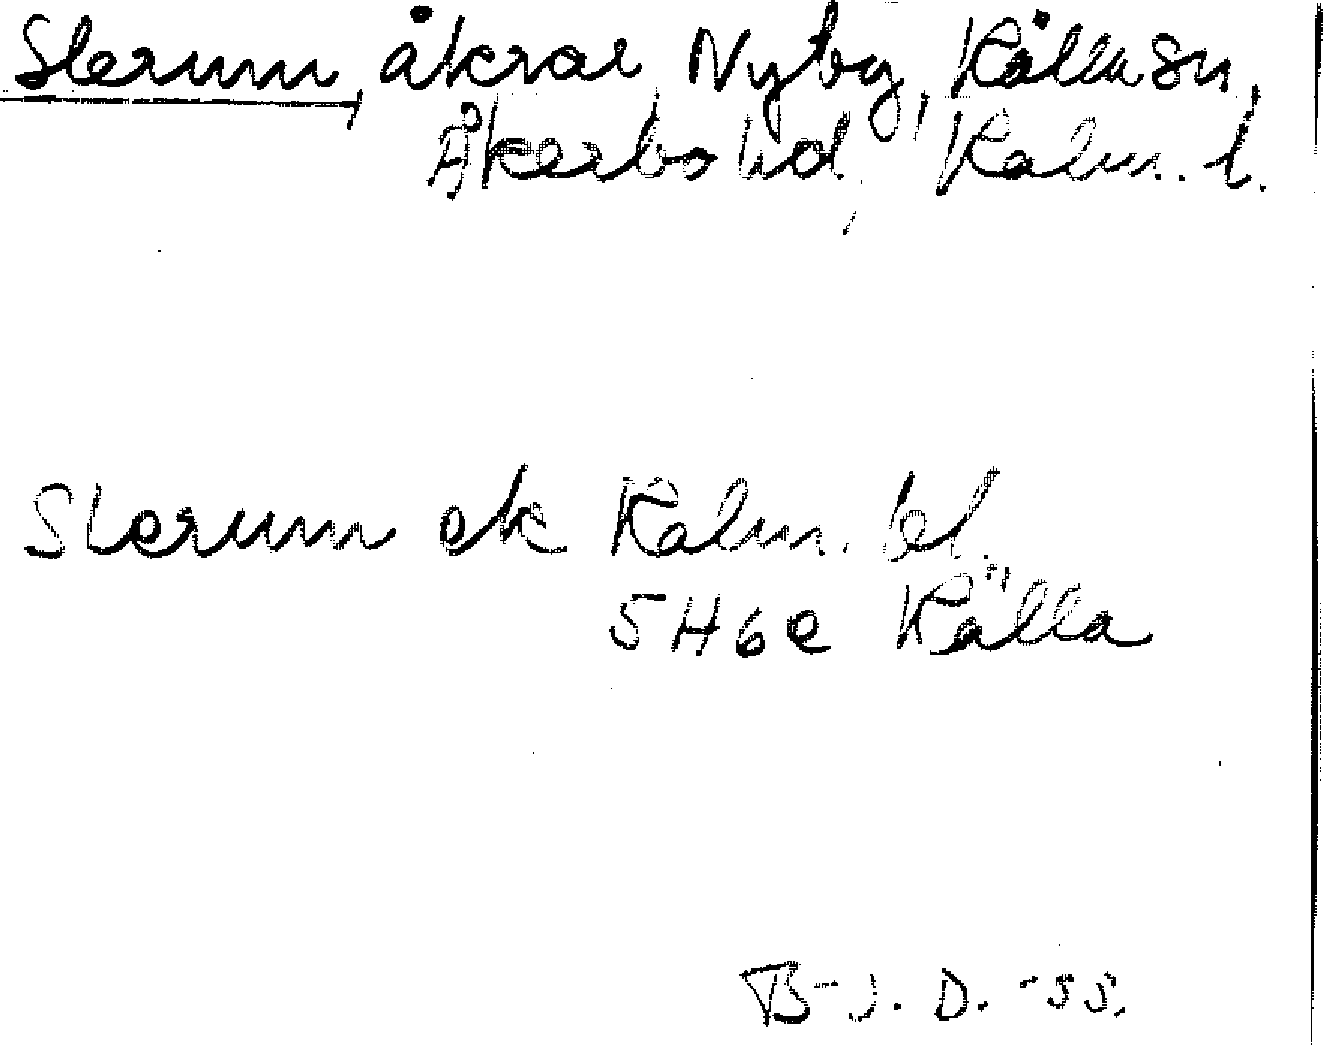 Slerum, åkrar, Nyby, Källa sn,
Åkerbo hd, Kalm. l.
Slerum ek Kalm. bl.
5H6e Källa
B-J. D. -55.